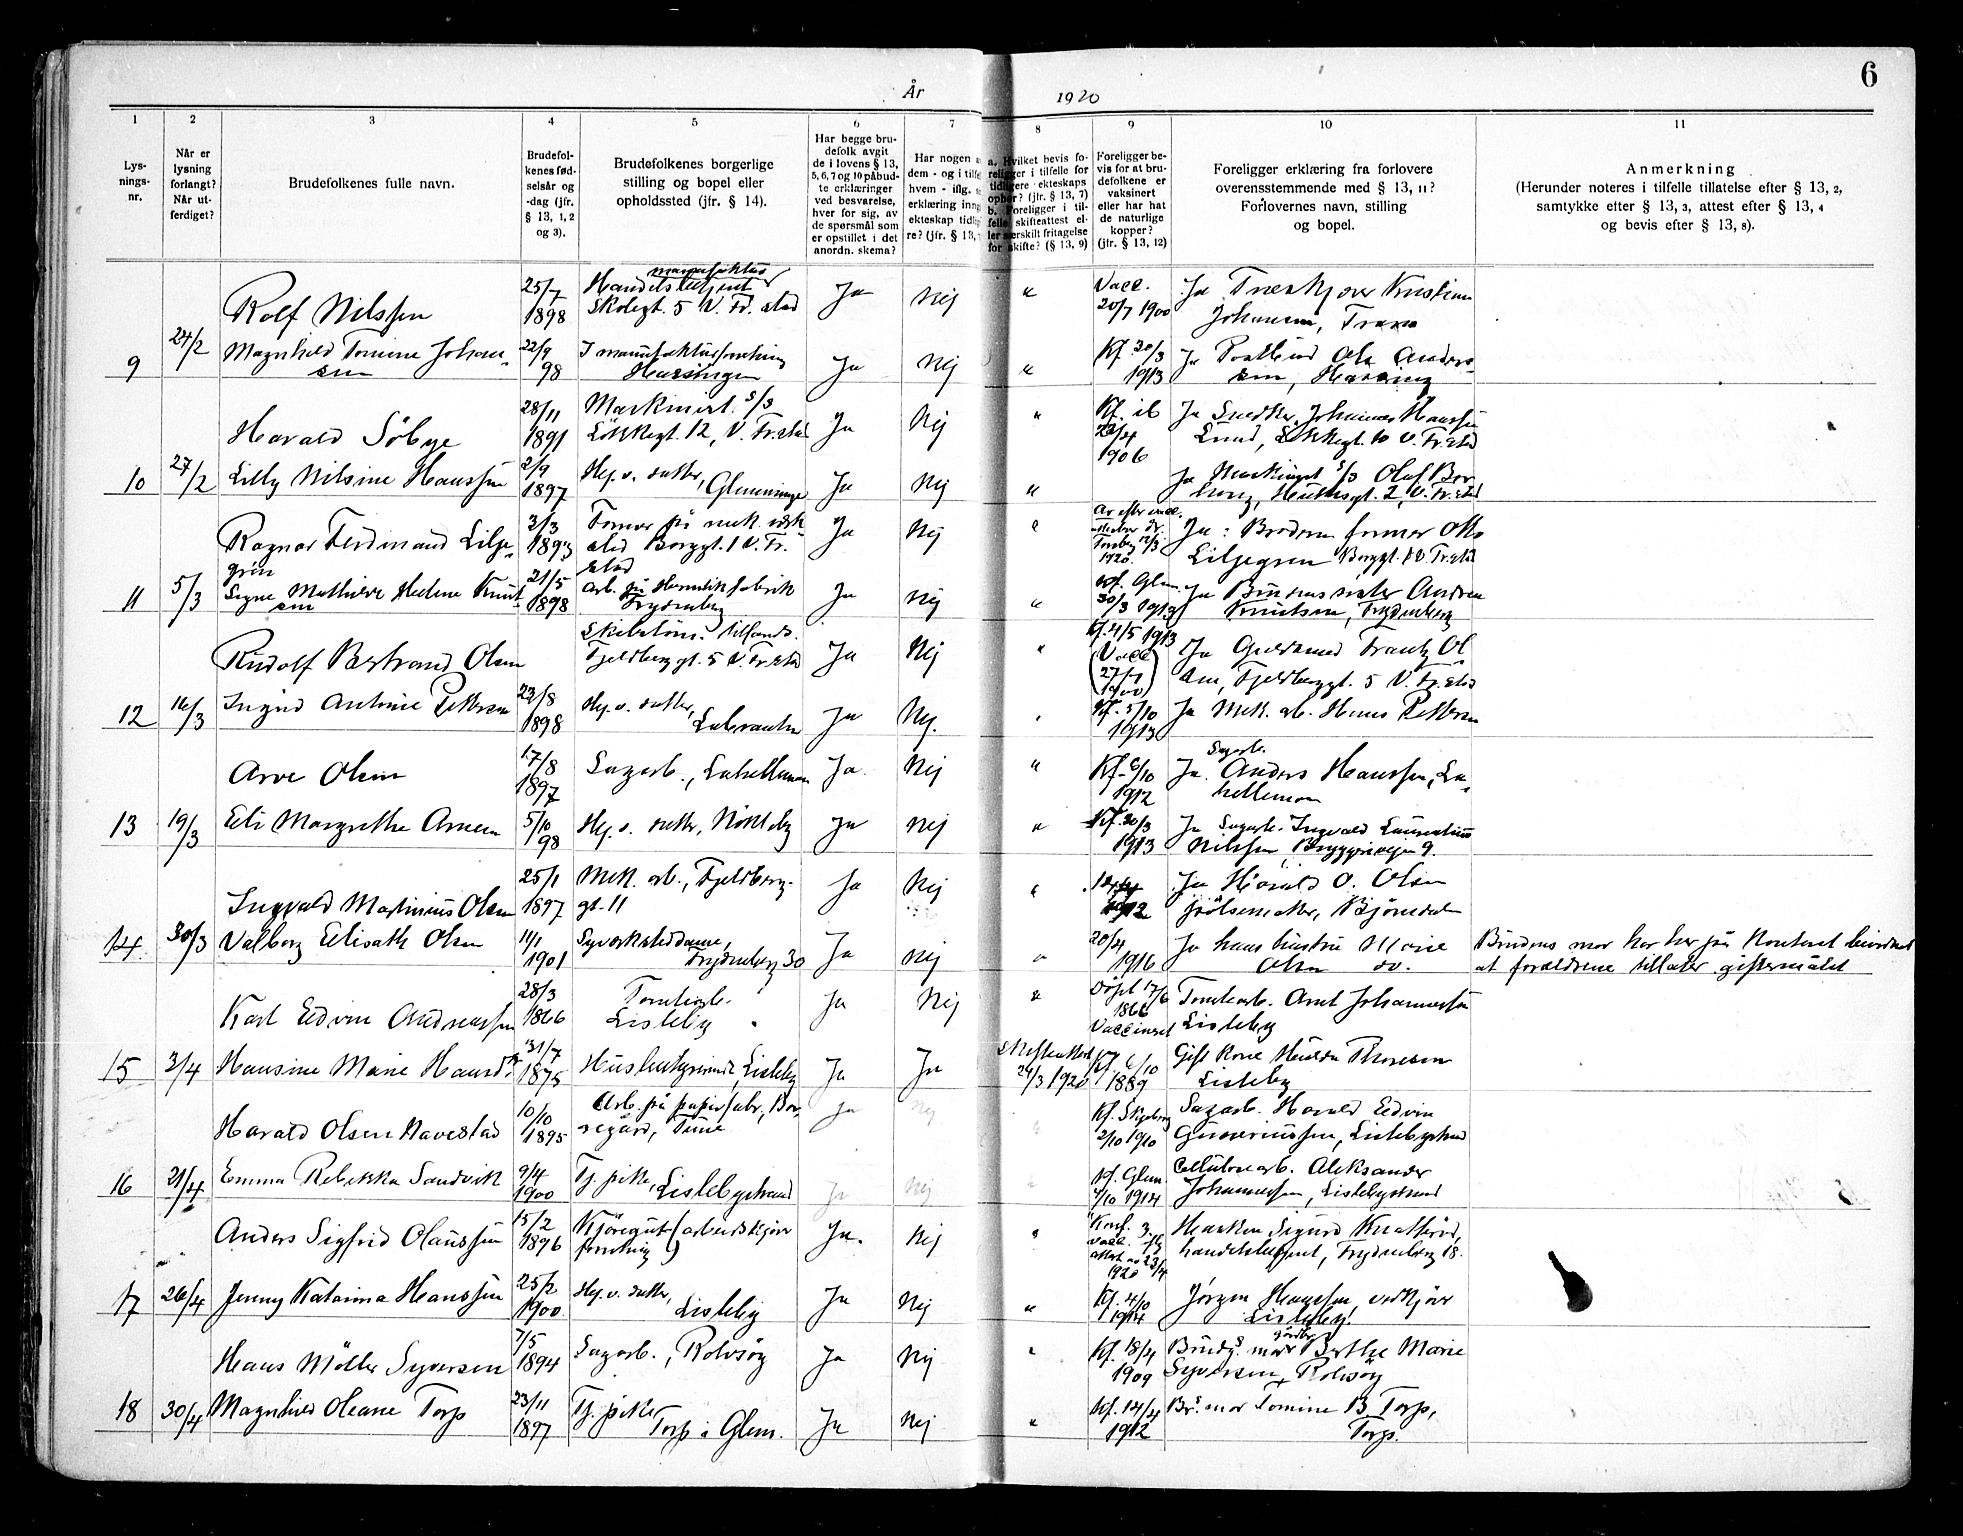 År 1920
6
1 2 3 4 5 6 7 8 9 10 11
Lys-
nings-
nr.
Når er
lysning
forlangt?
Når ut-
ferdiget?
Brudefolkenes fulle navn.
Brudefol-
kenes fød-
selsår og
-dag (jfr.
§ 13, 1, 2
og 3).
Brudefolkenes borgerlige
stilling og bopel eller
opholdssted (jfr. § 14).
Har begge bru-
defolk avgit
de i lovens § 13,
5, 6, 7 og 10 påbud-
te erklæringer
ved besvarelse,
hver for sig, av
de spørsmål som
er opstillet i det
anordn. skema?
Har nogen a
dem - og i tilfe
hvem - iflg. s
erklæring inng
ekteskap tidli
re? (jfr. § 13,
a. Hvilket bevis fo-
religger i tilfelle for
tidligere ekteskaps
ophør? (jfr. § 13, 7)
b. Foreligger i til-
felle skifteattest el-
ler særskilt fritagelse
for skifte? (§ 13, 9)
Foreligger be-
vis for at bru-
defolkene er
vaksinert
eller har hat
de naturlige
kopper?
(jfr. § 13, 12)
Foreligger erklæring fra forlovere
overensstemmende med § 13, 11?
Forlovernes navn, stilling
og bopel.
Anmerkning
(Herunder noteres i tilfelle tillatelse efter § 13, 2,
samtykke efter § 13, 3, attest efter § 13, 4
og bevis efter § 13, 8).
Rolf Nilssen 25/7 1898 manufaktur Handelsbetjent Skolegt. 5 V. Fr.stad Ja Nej " Vacc. 20/7 1900 Ja Kristian
Johansen, Trara
9 24/2 Magnhild Tomine Johan-
sen 22/9 98 I manufakturforretning Ja Nej " Kf. 20/3 1913 Ja Ole Anders-
sen,
Harald Söbye 28/11 1891 Maskinist s/s
Lökkegt. 12, V. Fr.stad Ja Nej " Kf. 22/4 1906 Ja Snedker Johannes Hanssen
Lund, Lökkegt. 10 V. Fr.stad
10 27/2 Lilly Nilsine Hanssen 2/9 1897 Hj. v. datter, Glemminge Ja Nej " Ja Maskinist s/s Olaf Bor-
V. Fr.stad
Ragnar Ferdinand Lilje-
gren 3/3 1893 Former på mek. verk-
sted Borggt. 1 V. Fr.
stad Ja Nej " 12/3 1920. Ja: Broderen former Otto
Liljegren Borggt. V. Fr.stad
11 5/3 Signe Mathilde Helene Knut-
sen 21/5 1898 Arb. på Hermetikfabrik
Frydenberg Ja Nej " Kf. Glem. 30/3 1913 Ja Andrea
Knutsen, Frydenberg
Rudolf Bertrand Olsen
Fjeldberggt. 5 V. Fr.stad Ja Nej " Kf. 4/5 1913
(Vacc. 27/7 1900) Ja Guldsmed Frantz Ol
sen, Fjeldberggt. 5 V. Fr.stad
12 16/3 Ingrid Antonie Pettersen 22/8 1898 Hj. v. datter, Ja Nej. " Kf. 5/10 1913 Ja Mek. arb. Hans Pettersen
Arve Olsen 17/8 1897 Sagarb., Ja. Nej " Kf. 6/10 1912 Ja. Sagarb. Anders Hanssen,
13 19/3 Eli Margrethe Arnesen 5/10 98 Hj. v. datter, Nökleby Ja Nej " Kf. 30/3 1913 Ja Sagarb. Ingvald Laurentius
Nilssen, Bryggeriveien 9.
Ingvald Martinius Olsen 25/1 1897 Mek. arb., Fjeldberg-
gt. 11 Ja Nej " 1912 Ja Harald O. Olsen
Björndalen
14 30/3 Valborg Elisabeth Olsen 11/1 1901 Syverksteddame,
Frydenberg 30 Ja Nej " 20/4 1916 Ja hans hustru Marie
Olsen do. Brudens mor har her på kontoret
at forældrene tillater giftermålet
Karl Edvin Andreassen 28/3 1866 Tomtearb.
Lisleby Ja Nej " Döpt 17/6 1866
Vaccineret Tomtearb. Arnt Johannessen
Lisleby
15 3/4 Hansine Marie Hansdtr. 31/7 1875 Husbestyrerinde, Lisleby Ja Ja Skifteattest
24/3 1920 Kf. 6/10 1889 Gift Kone Hulda Thoresen
Lisleby
Harald Olsen Navestad 10/10 1895 Arb. på papirfabr., Bor-
regård, Tune Ja Nej " Kf. Skjeberg
2/10 1910 Sagarb. Harald Edvin
Gunneriussen, Lislebystrand
16 21/4 Emma Rebekka Sandvik 9/4 1900 Tj. pike, Lislebystrand Ja Nej " Kf. Glem.
/10 1914 Cellulosearb. Aleksander
Johannessen, Lislebystrand
Anders Sigfrid Olaussen 15/2 1896 Kjöregut (arbeidskjörer
forretning) Ja. Nej " Konf.
vacc.
attest av 23/4 1920 Haaken Sigurd
handelsbetjent, Frydenberg 18.
17 26/4 Jenny Katarina Hanssen 25/2 1900 Hj. v. datter,
Lisleby Ja Nej " Kf. 4/10 1914 Jörgen Hanssen, vedkjörer
Lisleby
Hans Möller Syversen 7/5 1894 Sagarb., Rolvsöy Ja Nej " Kf. 18/4 1909 Brudg.s mor Berthe Marie
Syversen, Rolvsöy
18 30/4 Magnhild Oleane Torp 23/11 1897 Tj. pike
Torp i Glem. Ja Nej " Kf. 14/4 1912 Br.s mor Tomine B. Torp,
Torp.